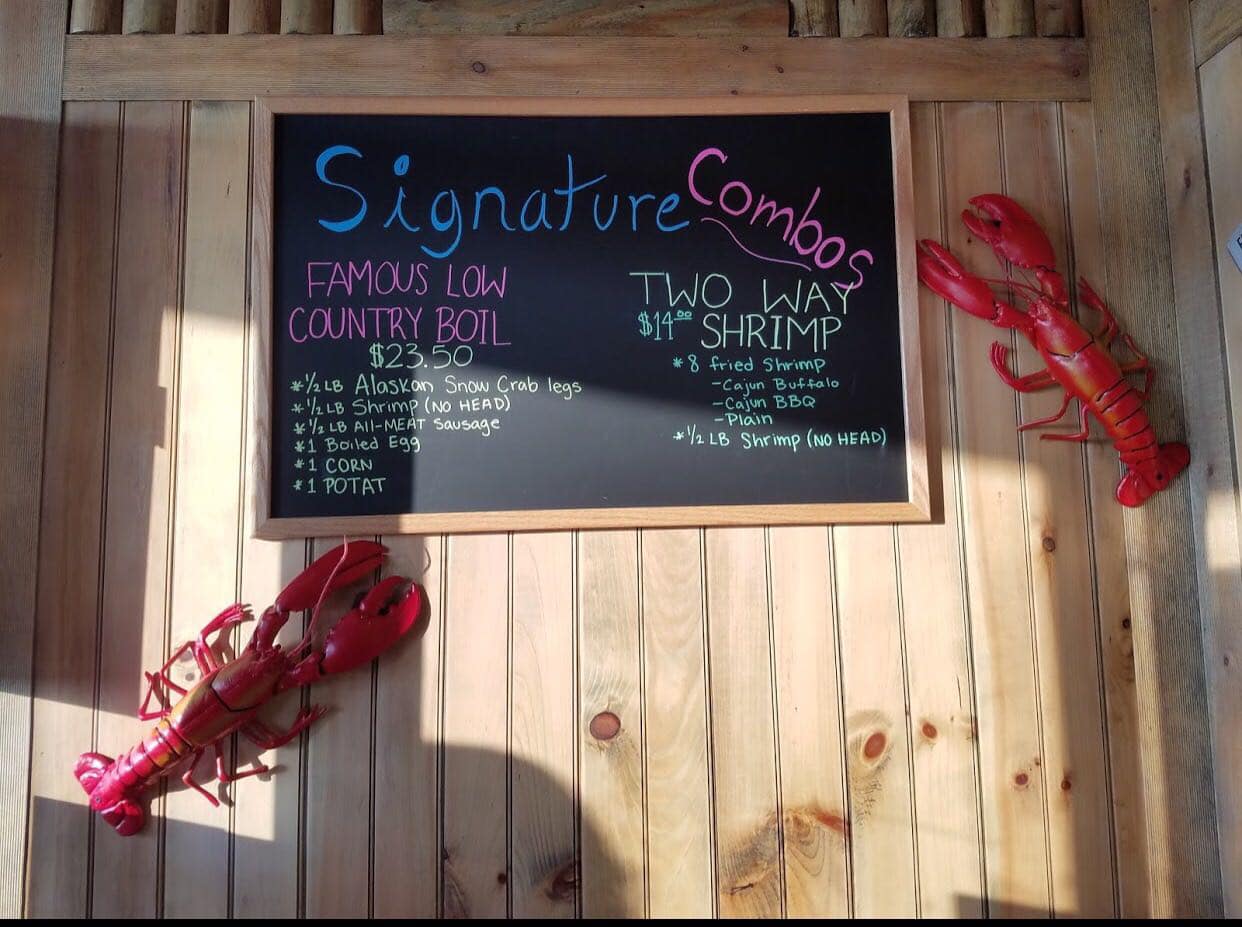 Signature Combos
FAMOUS LOW
COUNTRY BOIL
$23.50
*½ LB Alaskan Snow Crab legs
*½ LB Shrimp (NO HEAD)
*½ LB All-MEAT sausage
*1 Boiled Egg
*1 CORN
*1 POTAT
TWO WAY
$14.00 SHRIMP
*8 fried Shrimp
-Cajun Buffalo
-Cajun BBQ
-Plain
*½ LB Shrimp (NO HEAD)